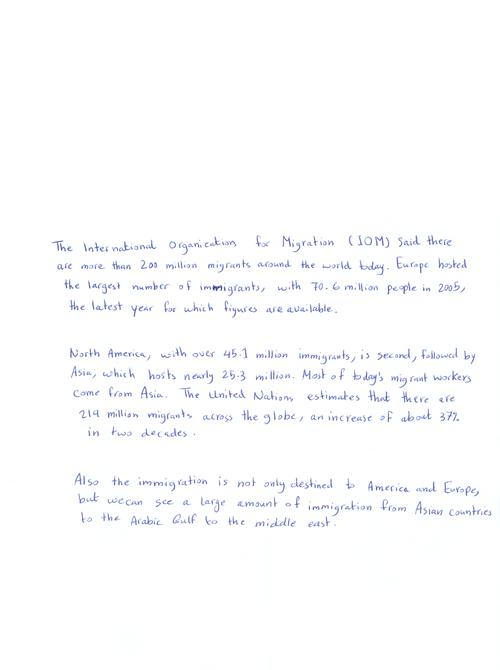 The International Organization for Migration (IOM) Said there
are more than 200 million migrants around the world today. Europe hosted
the largest number of immigrants, with 70.6 million people in 2005,
the latest year for which figures are available.
North America, with over 45.1 million immigrants, is second, followed by
Asia, which hosts nearly 25.3 million. Most of today's migrant workers
come from Asia. The United Nations estimates that there are
214 million migrants across the globe, an increase of about 37%
in two decades.
Also the immigration is not only destined to America and Europe,
but we can see a large amount of immigration from Asian countries
to the Arabic Gulf to the middle east.